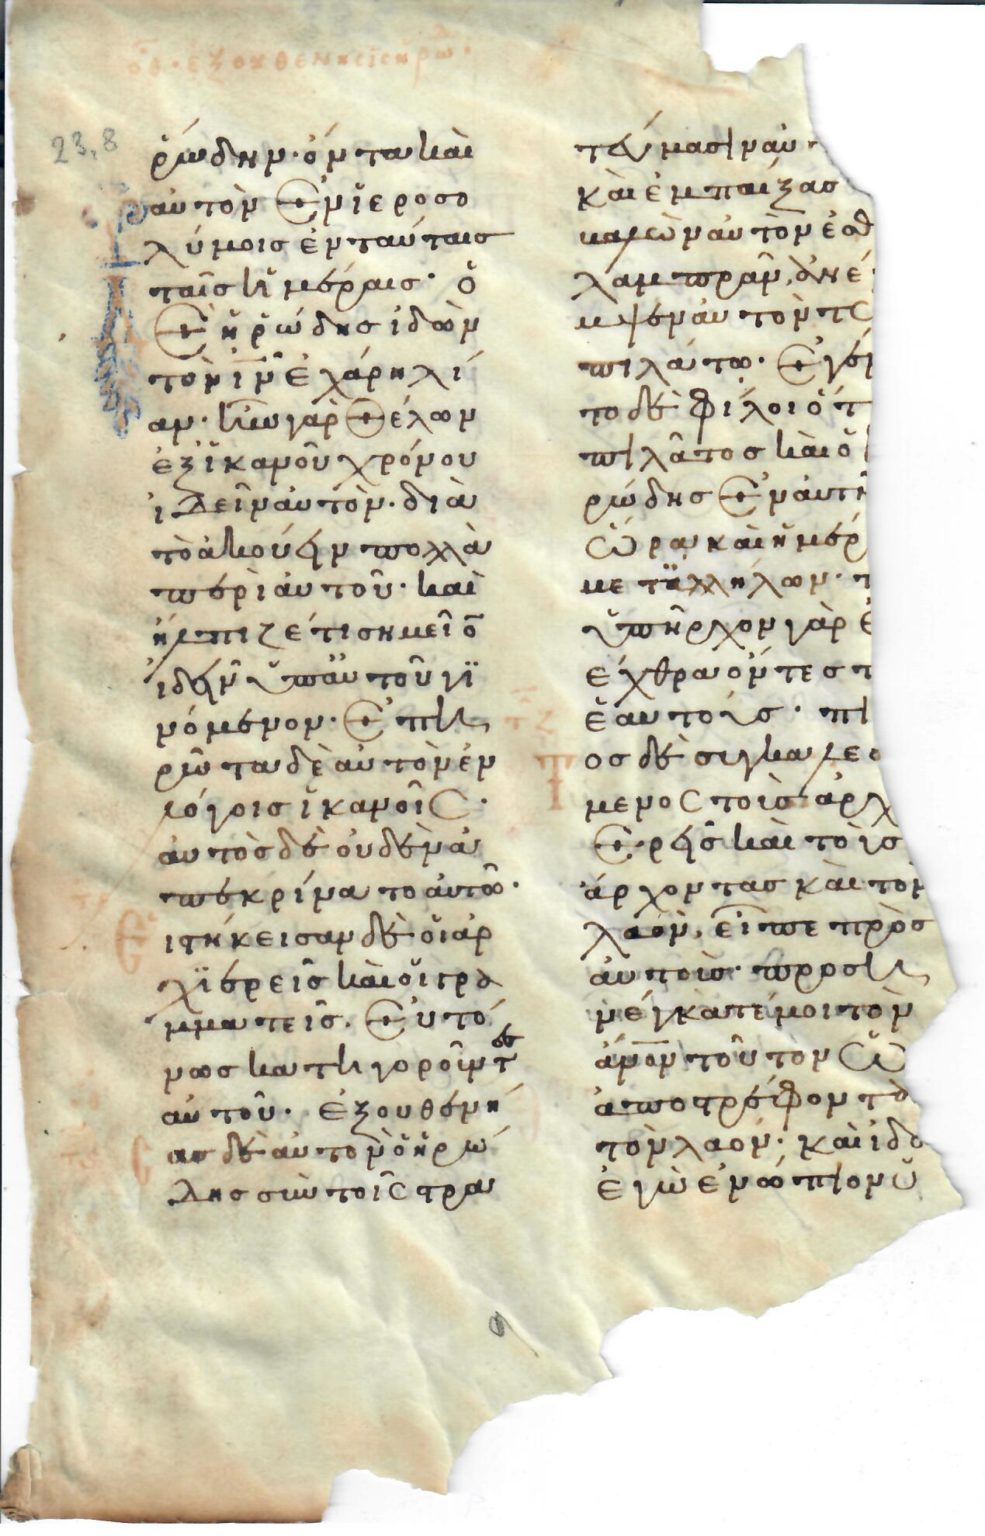 23,8
ρώδην· ὄντα καὶ
αὐτὸν ἐν ἱεροσο
λύμοις ἐν ταύταις
ταῖς ἡμέραις· ὁ
δὲ ἡρώδης ἰδὼν
τὸν ἰ̅ν̅ ἐχάρη λί
αν· ἦν γὰρ θέλων
ἐξ ἱκανοῦ χρόνου
ἰδεῖν αὐτὸν· διὰ
τὸ ἀκούειν πολλὰ
περὶ αὐτοῦ· καὶ
ἤλπιζέ τι σημεῖο
ἰδεῖν ὑπ αὐτοῦ γι
νόμενον· ἐπη
ρώτα δὲ αὐτὸν ἐν
λόγοις ἱκανοῖς·
αὐτὸς δὲ οὐδὲν ἀ
πεκρίνατο αὐτῶ·
ιστήκεισαν δὲ οἱ ἀρ
χιερεῖς καὶ οἱ γρα
μματεῖς· εὐτό
νως κατηγοροῦντες
αὐτοῦ· ἐξουθενή
ας δὲ αὐτὸν ὁ ἡρώ
δης σὺν τοῖς στρα
τεύμασιν αὐ
καὶ ἐμπαίξας
βαλὼν αὐτὸν ἐσθ
λαμπρὰν, ἀνέ
μψεν αὐτὸν τῶ
πιλάτω· ἐγέν
το δὲ φίλοι ὅ τ
πιλάτος καὶ ὁ
ρώδης ἐν αὐτῆ
ὥρα καὶ ἡμέρ
μετ ἀλλήλων·
ὑπῆρχον γὰρ ἐ
ἔχθρα ὄντες π
ἑαυτούς· πι
ος δὲ συγκαλεσ
μενος τοὺς ἀρχ
ιερεῖς καὶ τοὺς
ἄρχοντας καὶ τὸν
λαὸν, εἶπε πρὸς
αὐτούς· προση
νέγκατέ μοι τὸν
ἄ̅ν̅ο̅ν̅ τοῦτον ὡ
ἀποστρέφοντα
τὸν λαόν· καὶ ἰδο
ἐγὼ ἐνώπιον ὑ